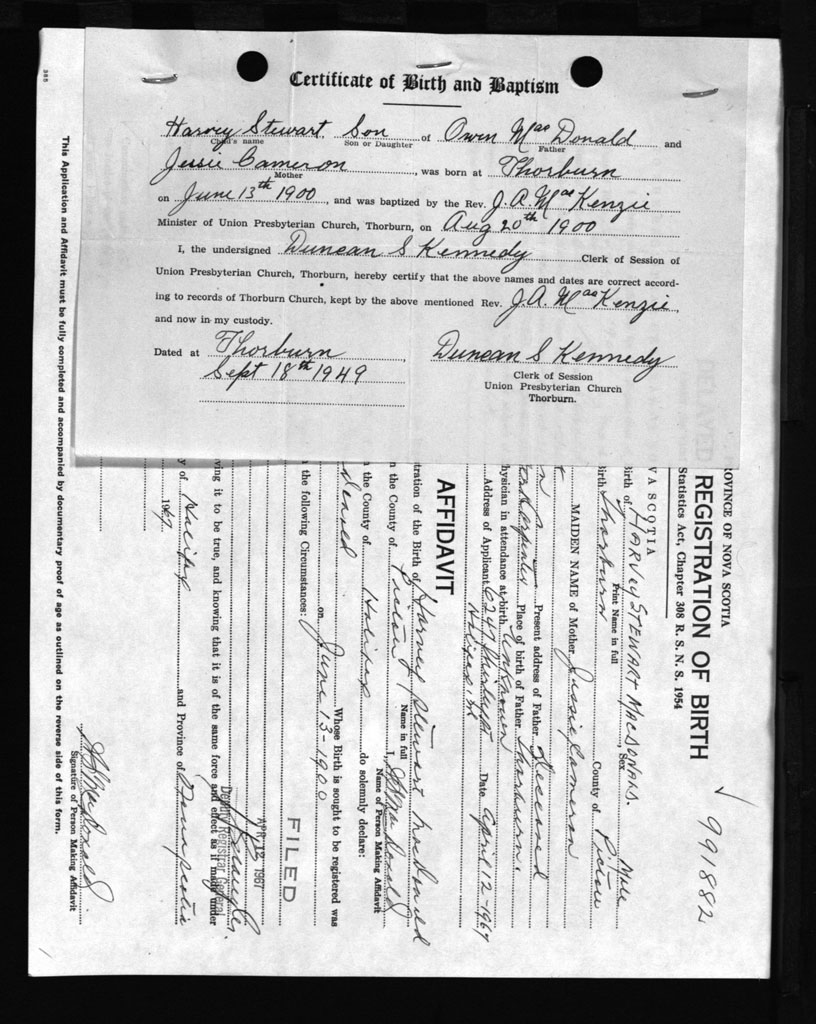 Certificate of Birth and Baptism
Harvey Stewart, Son of Owen MacDonald and
Child's name Son or Daughter Father
Jessie Cameron, was born at Thorburn
Mother
on June 13th 1900, and was baptized by the Rev. J. A. MacKenzie
Minister of Union Presbyterian Church, Thorburn, on Aug 20th 1900
I, the undersigned Duncan S Kennedy Clerk of Session of
Union Presbyterian Church, Thorburn, hereby certify that the above names and dates are correct accord-
ing to records of Thorburn Church, kept by the above mentioned Rev. J. A. MacKenzie,
and now in my custody.
Dated at Thorburn, Duncan S Kennedy
Sept 18th 1949
Clerk of Session
Union Presbyterian Church
Thorburn.
991882
ROVINCE OF NOVA SCOTIA
REGISTRATION OF BIRTH
Statistics Act, Chapter 308 R. S. N. S. 1954
VA SCOTIA
Birth of HARVEY STEWART MACDONALD. Sex Male
Print Name in full
Birth Thorburn County of Pictou
MAIDEN NAME of Mother Jessie Cameron
Present address of Father Deceased
Carpenter Place of birth of Father Thorburn.
hysician in attendance at birth Unknown
Address of Applicant 6247 Date April 12-1967
Halifax, N.S.
AFFIDAVIT
tration of the Birth of Harvey Stewart MacDonald
Name in full
n the County of Pictou I,
Name of Person Making Affidavit
n the County of Halifax do solemnly declare:
Whose Birth is sought to be registered was
on June 13-1900
n the following Circumstances:
FILED
APR 12 1967
Deputy Registrar General
ving it to be true, and knowing that it is of the same force and effect as if made under
y of Halifax and Province of Nova Scotia
1967
Signature of Person Making Affidavit
This Application and Affidavit must be fully completed and accompanied by documentary proof of age as outlined on the reverse side of this form.